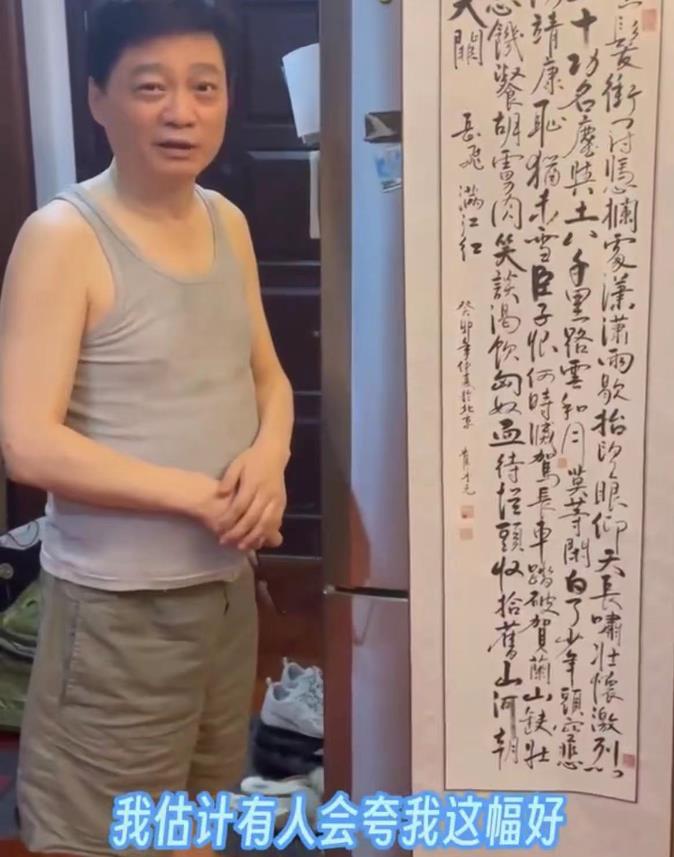 髮衝冠憑攔處瀟瀟雨歇抬望眼仰天長嘯壯懷激烈
十功名塵與土八千里路雲和月莫等閑白了少年頭空悲
靖康恥猶未雪臣子恨何時滅駕長車踏破賀蘭山缺壯
志饑餐胡虜肉笑談渴飲匈奴血待從頭收拾舊山河朝
天闕
岳飛 滿江紅
癸卯年仲夏於北京
我估计有人会夸我这幅好